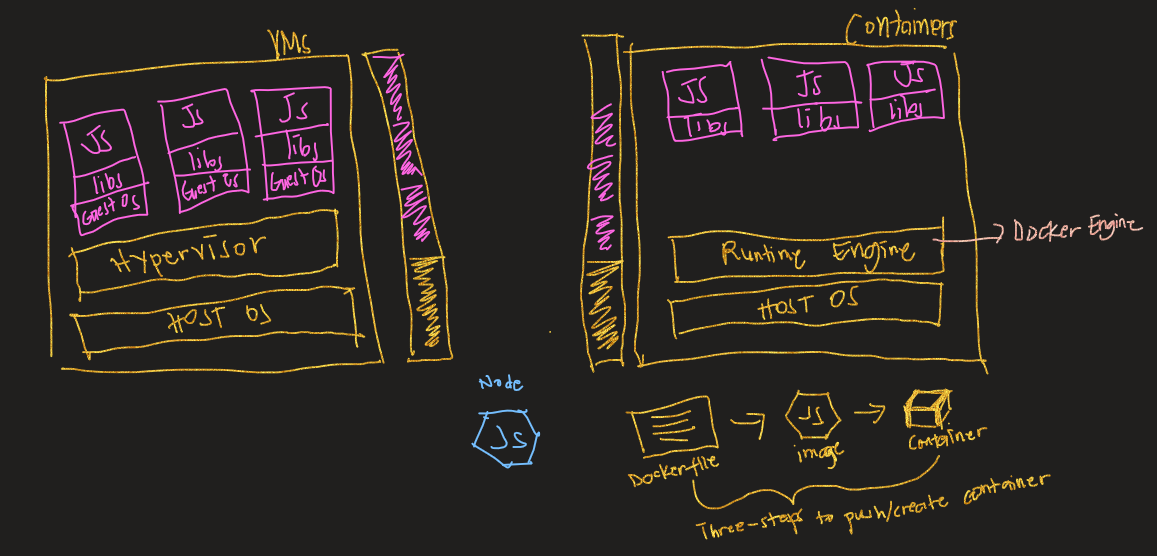 VMs
JS
libs
Guest OS
JS
libs
Guest OS
JS
libs
Guest OS
Hypervisor
HOST OS
Containers
JS
libs
JS
libs
JS
libs
Runtime Engine
Docker Engine
HOST OS
Node
JS
Dockerfile
JS
image
Container
Three-steps to push/create container